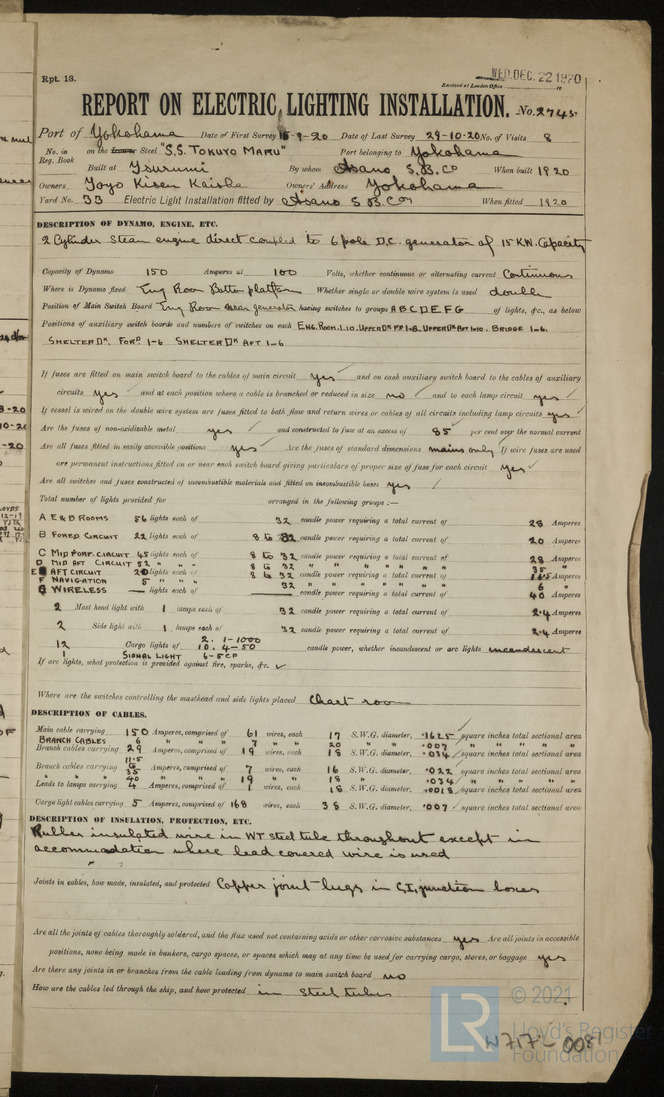 Rpt. 13.
WED. DEC. 22 1920
Received at London Office
REPORT ON ELECTRIC LIGHTING INSTALLATION. No. 2745
Port of Yokohama Date of First Survey 15-9-20 Date of Last Survey 29-10-20 No. of Visits 8
No. in Reg. Book on the Iron or Steel "S.S. TOKUYO MARU" Port belonging to Yokohama
Built at Tsurumi By whom Asano S.B.Co When built 1920
Owners Toyo Kisen Kaisha Owners' Address Yokohama
Yard No. 33 Electric Light Installation fitted by Asano S B Coy When fitted 1920
DESCRIPTION OF DYNAMO, ENGINE, ETC.
2 Cylinder Steam engine direct coupled to 6 pole D.C. generator of 15 K.W. Capacity
Capacity of Dynamo 150 Amperes at 100 Volts, whether continuous or alternating current Continuous
Where is Dynamo fixed Eng Room Bottom platform Whether single or double wire system is used double
Position of Main Switch Board Eng Room near generator having switches to groups A B C D E F G of lights, &c., as below
Positions of auxiliary switch boards and numbers of switches on each ENG. ROOM. 1-10. UPPER DK FD 1-8. UPPER DK AFT 1-10. BRIDGE 1-6.
SHELTER DK. FORD 1-6 SHELTER DK AFT 1-6
If fuses are fitted on main switch board to the cables of main circuit yes and on each auxiliary switch board to the cables of auxiliary
circuits yes and at each position where a cable is branched or reduced in size no and to each lamp circuit yes
If vessel is wired on the double wire system are fuses fitted to both flow and return wires or cables of all circuits including lamp circuits yes
Are the fuses of non-oxidizable metal yes and constructed to fuse at an excess of 85 per cent over the normal current
Are all fuses fitted in easily accessible positions yes Are the fuses of standard dimensions mains only If wire fuses are used
are permanent instructions fitted on or near each switch board giving particulars of proper size of fuse for each circuit yes
Are all switches and fuses constructed of incombustible materials and fitted on incombustible bases yes
Total number of lights provided for arranged in the following groups :—
A E & B ROOMS 56 lights each of 32 candle power requiring a total current of 28 Amperes
B FORED CIRCUIT 22 lights each of 8 to 32 candle power requiring a total current of 20 Amperes
C MID FORD. CIRCUIT 45 lights each of 8 to 32 candle power requiring a total current of 28 Amperes
D MID AFT CIRCUIT 52 " " " 8 to 32 " " " " " " 35 "
E AFT CIRCUIT 20 lights each of 8 to 32 candle power requiring a total current of Amperes
F NAVIGATION 5 " " " 32 " " " " " " 6 "
G WIRELESS — lights each of — candle power requiring a total current of 40 Amperes
2 Mast head light with 1 lamps each of 32 candle power requiring a total current of 2.4 Amperes
2 Side light with 1 lamps each of 32 candle power requiring a total current of 2.4 Amperes
12 Cargo lights of 2. 1-1000 10. 4-50 candle power, whether incandescent or arc lights incandescent
1 SIGNAL LIGHT 6-5 CP
If arc lights, what protection is provided against fire, sparks, &c.
Where are the switches controlling the masthead and side lights placed Chart room
DESCRIPTION OF CABLES.
Main cable carrying 150 Amperes, comprised of 61 wires, each 17 S.W.G. diameter, .1625 square inches total sectional area
BRANCH CABLES 6 " " " 7 " " 20 " " .007 " " " "
Branch cables carrying 29 Amperes, comprised of 19 wires, each 18 S.W.G. diameter, .034 square inches total sectional area
Branch cables carrying 11.5 to 35 Amperes, comprised of 7 wires, each 16 S.W.G. diameter, .022 square inches total sectional area
" " " 40 " " " 19 " " 18 " " .034 " " " "
Leads to lamps carrying 4 Amperes, comprised of 1 wires, each 18 S.W.G. diameter, .0018 square inches total sectional area
Cargo light cables carrying 5 Amperes, comprised of 168 wires, each 38 S.W.G. diameter, .007 square inches total sectional area
DESCRIPTION OF INSULATION, PROTECTION, ETC.
Rubber insulated wire in WT steel tube throughout except in
accommodation where lead covered wire is used
Joints in cables, how made, insulated, and protected Copper joint lugs in C.I. junction boxes
Are all the joints of cables thoroughly soldered, and the flux used not containing acids or other corrosive substances yes Are all joints in accessible
positions, none being made in bunkers, cargo spaces, or spaces which may at any time be used for carrying cargo, stores, or baggage yes
Are there any joints in or branches from the cable leading from dynamo to main switch board no
How are the cables led through the ship, and how protected in steel tubes
LR
© 2021
Lloyd's Register
Foundation
W717-0081